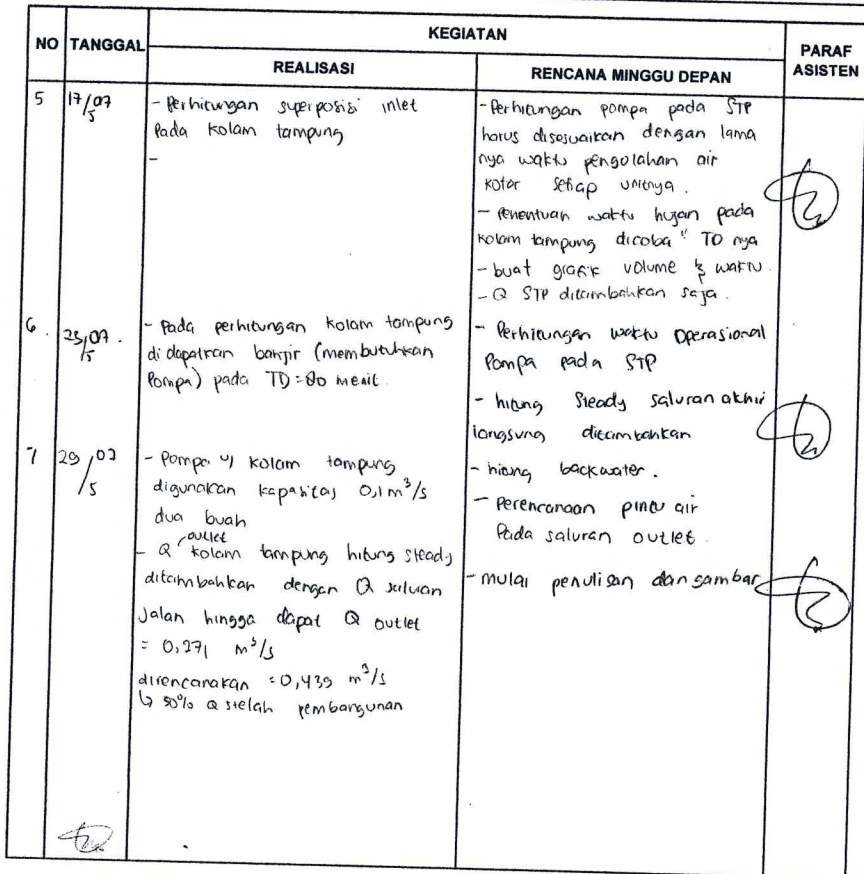 NO TANGGAL KEGIATAN PARAF ASISTEN
REALISASI RENCANA MINGGU DEPAN
5 17/07/5
- Perhitungan superposisi inlet
Pada kolam tampung
-
- Perhitungan pompa pada STP
harus disesuaikan dengan lama
nya waktu pengolahan air
kotor setiap unitnya.
- Penentuan waktu hujan pada
kolam tampung dicoba" TD nya
- buat grafik volume & waktu.
- Q STP ditambahkan saja.
6. 25/07/5.
- Pada perhitungan kolam tampung
didapatkan banjir (membutuhkan
Pompa) pada TD = 80 menit.
- Perhitungan waktu Operasional
Pompa pada STP
- hitung Steady saluran akhir
langsung ditambahkan
7 29/07/5
- Pompa u/ kolam tampung
digunakan kapasitas 0,1 m³/s
dua buah
- Q outlet kolam tampung hitung steady
ditambahkan dengan Q saluran
Jalan hingga dapat Q outlet
= 0,271 m³/s
direncanakan = 0,439 m³/s
↳ 50% Q stelah pembangunan
- hitung backwater.
- Perencanaan pintu air
Pada saluran outlet.
- mulai penulisan dan gambar